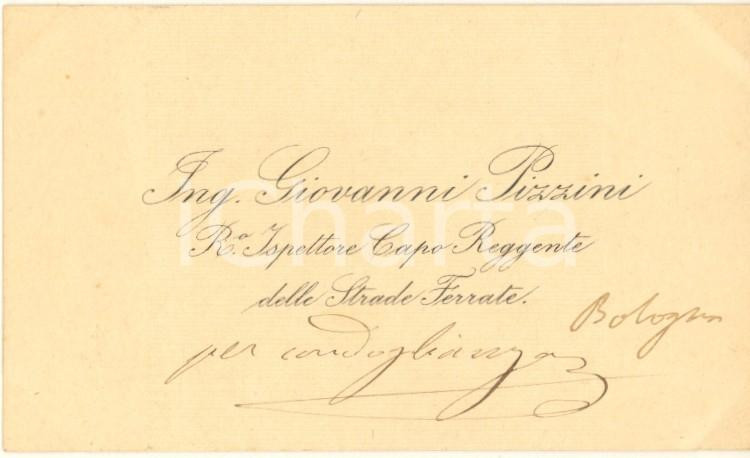 Ing. Giovanni Pizzini
R.º Ispettore Capo Reggente
delle Strade Ferrate.
Bologna
per condoglianza
iCharta